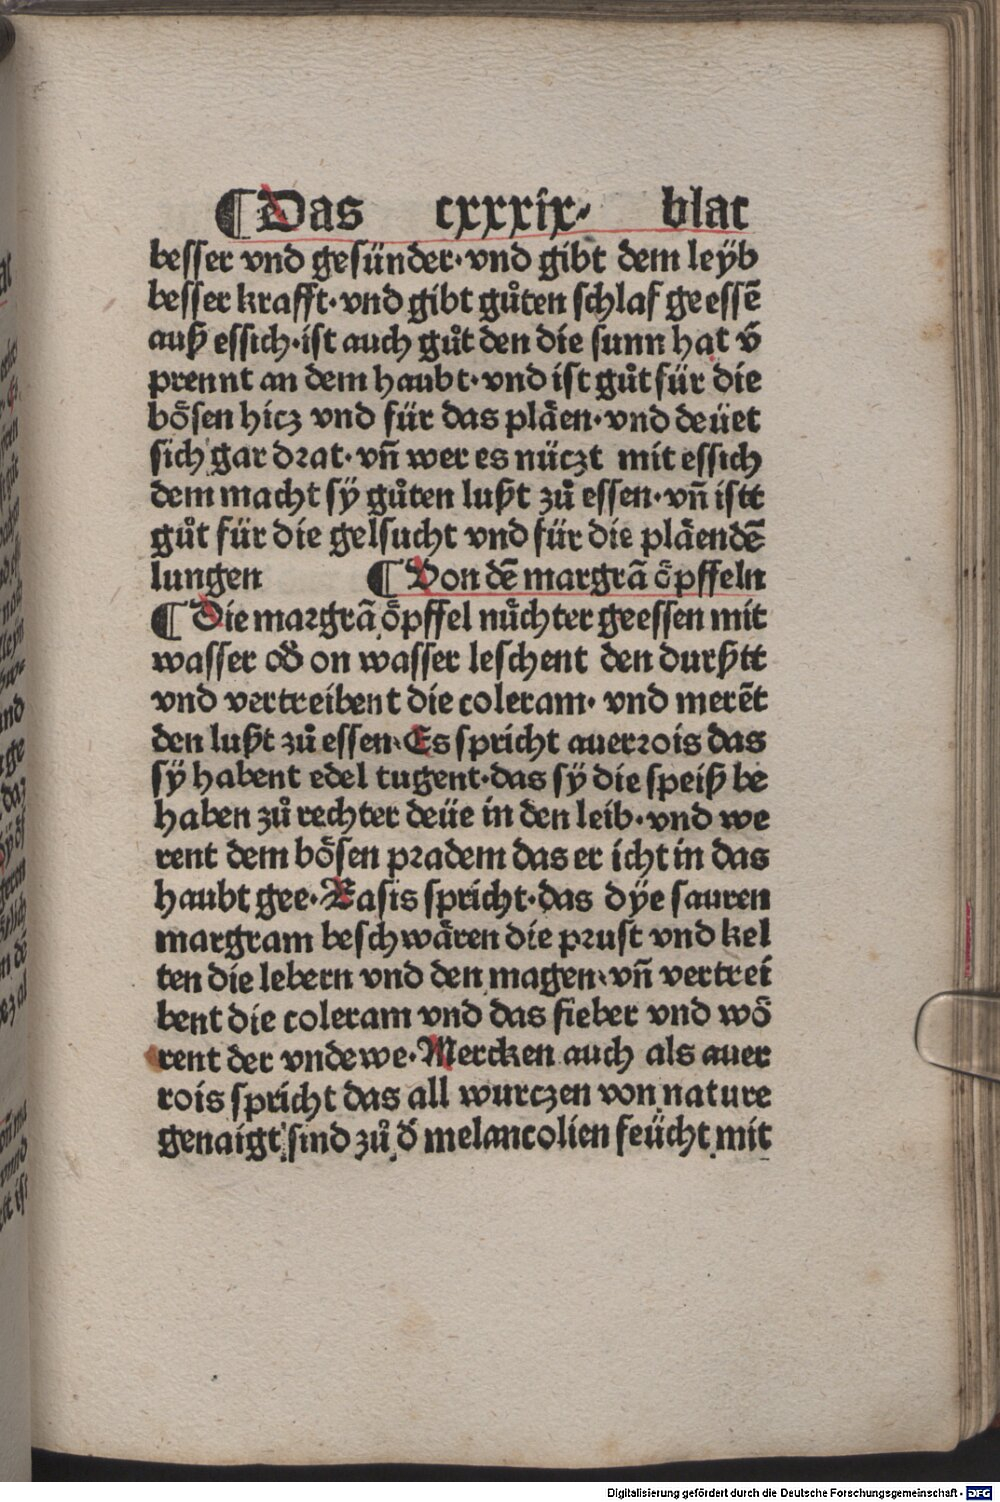 ¶ Das cxxxix· blat
besser vnd gesünder·vnd gibt dem leÿb
besser krafft·vnd gibt gůten schlaf geessē
auß essich·ist auch gůt den die sunn hat v̄
prennt an dem haubt·vnd ist gůt für die
bösen hicz vnd für das pläen·vnd deüet
sich gar drat·vn̄ wer es nüczt mit essich
dem macht sÿ gůten lußt zů essen·vn̄ istt
gůt für die gelsucht vnd für die pläendē
lungen ¶ Von dē margrā öpffeln
¶ Die margrā öpffel nüchter geessen mit
wasser od̄ on wasser leschent den durßtt
vnd vertreibent die coleram· vnd merēt
den lußt zů essen·Es spricht auerrois das
sÿ habent edel tugent·das sÿ die speiß be
haben zů rechter deüe in den leib·vnd we
rent dem bösen pradem das er icht in das
haubt gee·Rasis spricht·das dÿe sauren
margram beschwären die prust vnd kel
ten die lebern vnd den magen·vn̄ vertrei
bent die coleram vnd das fieber vnd wö
rent der vndewe·Mercken auch als auer
rois spricht das all wurczen von nature
genaigt sind zů d̄ melancolien feücht mit
Digitalisierung gefördert durch die Deutsche Forschungsgemeinschaft - DFG